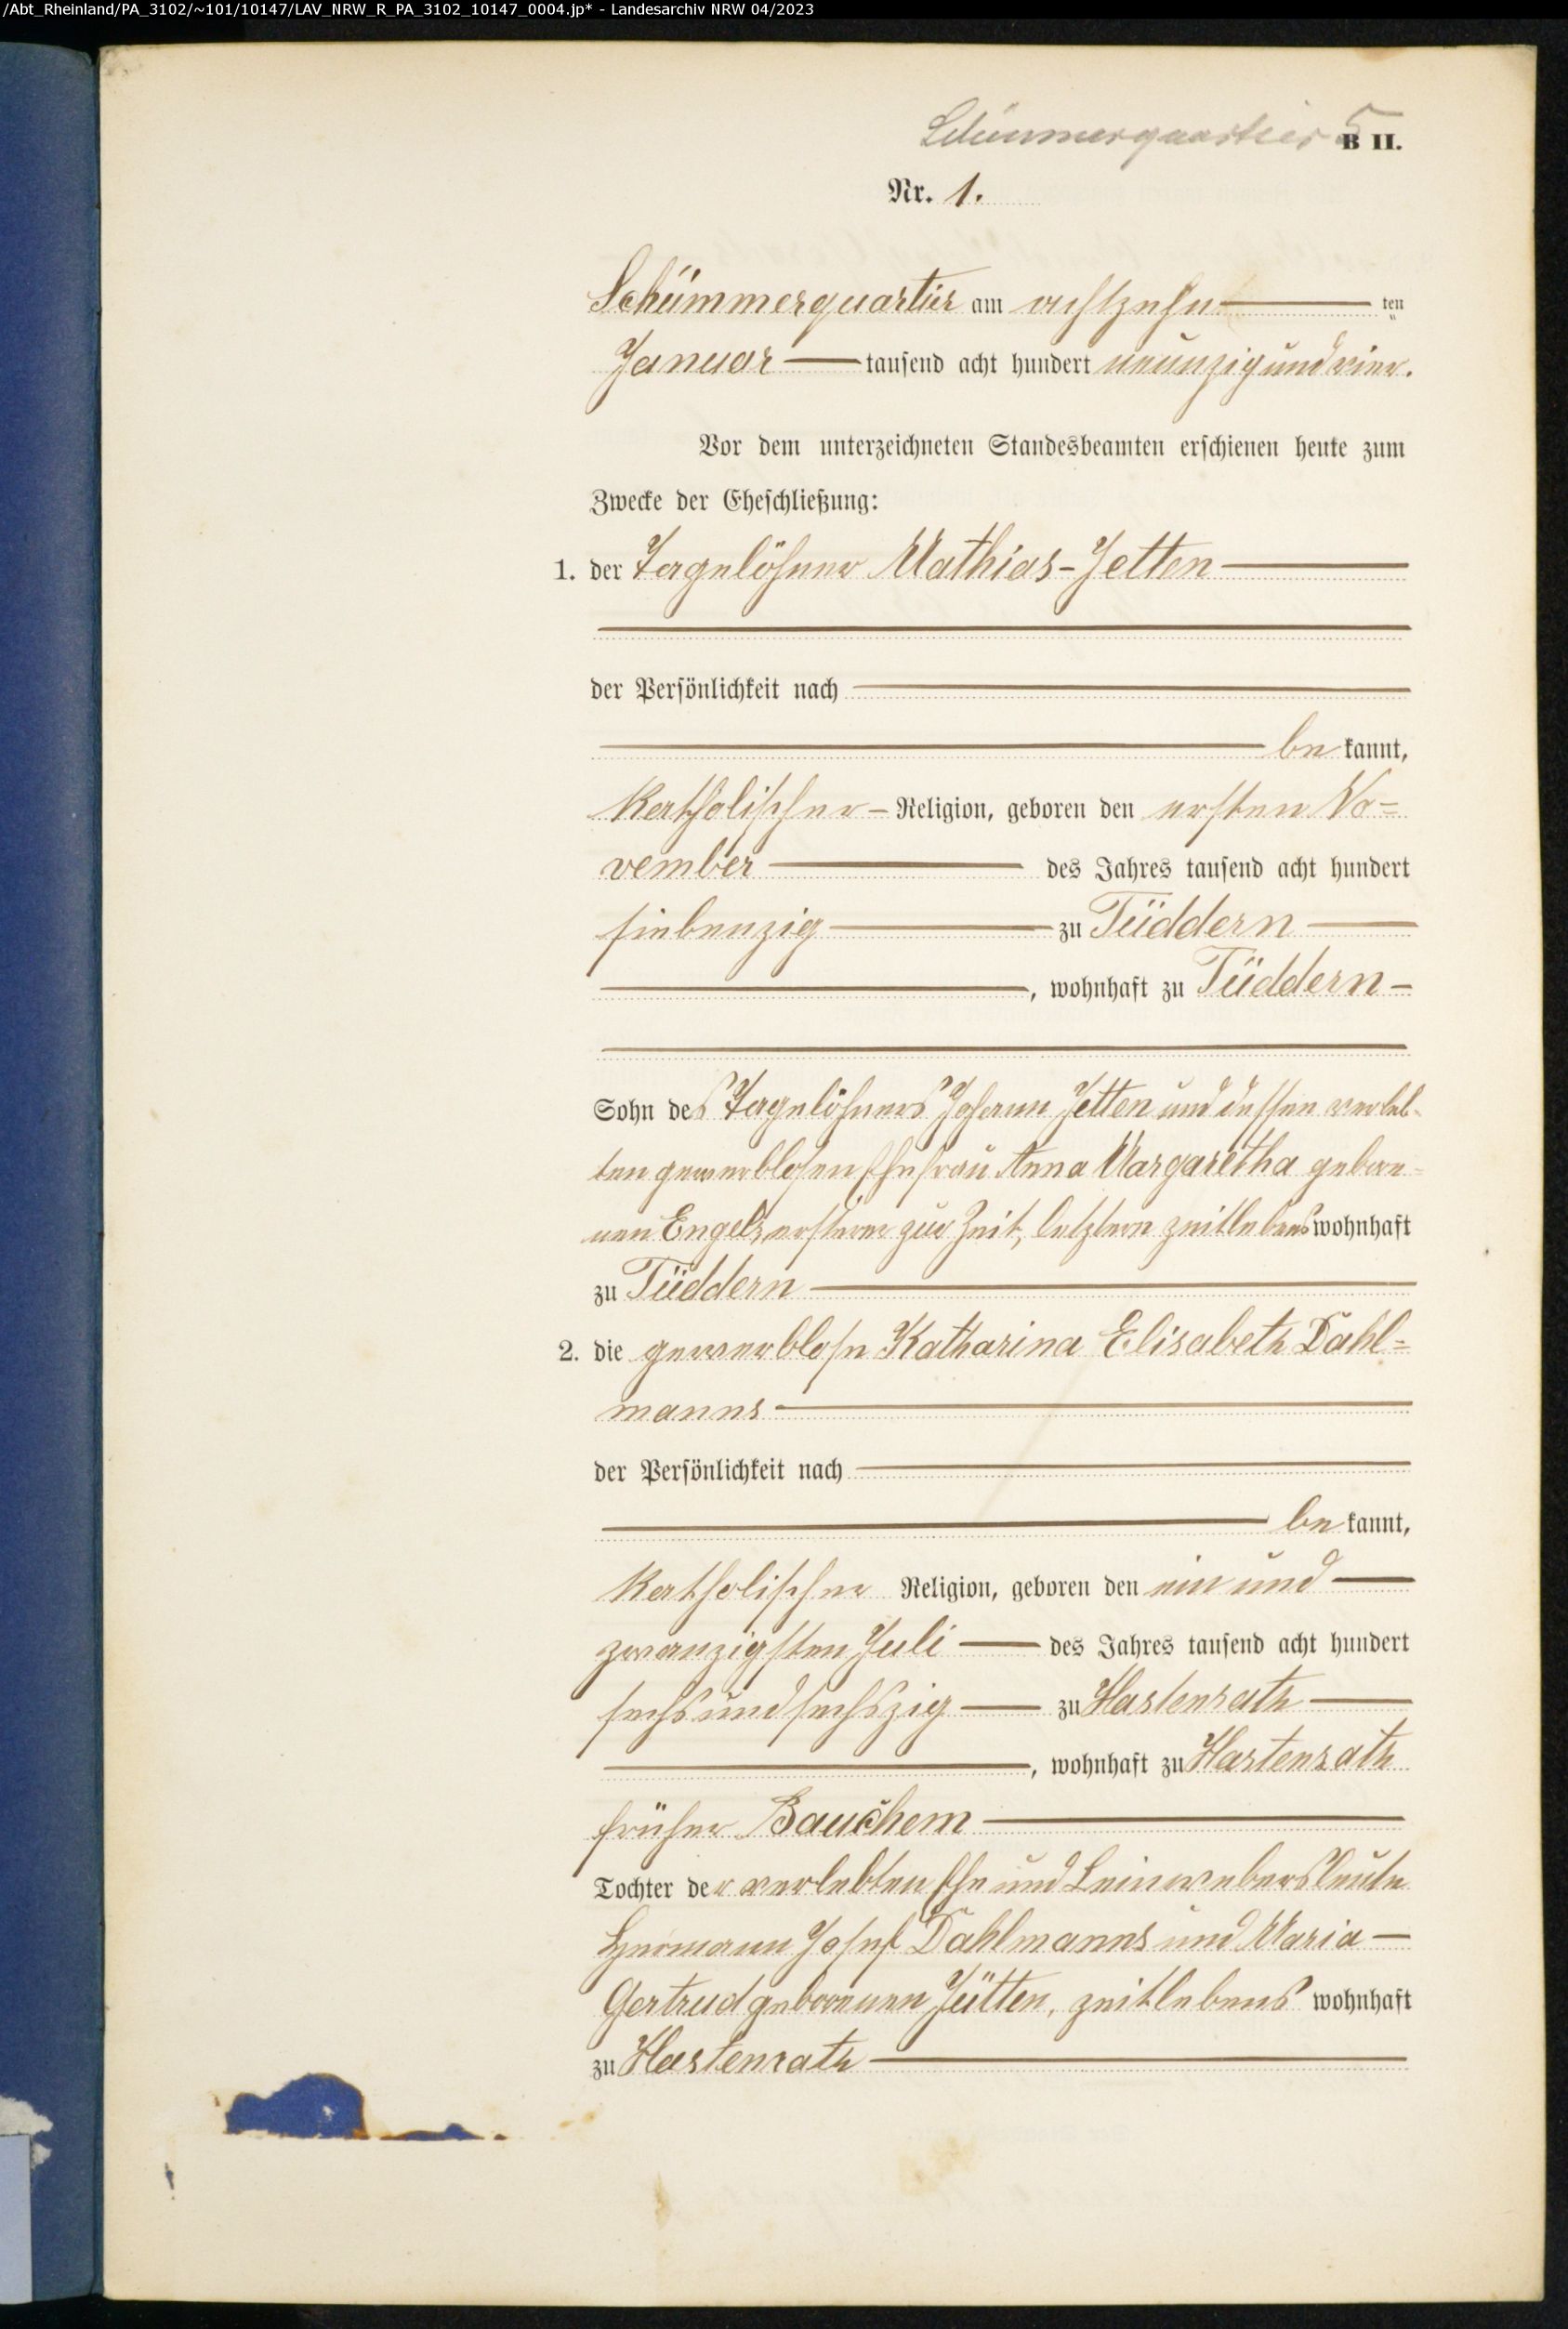 /Abt_Rheinland/PA_3102/~101/10147/LAV_NRW_R_PA_3102_10147_0004.jp* - Landesarchiv NRW 04/2023
Schümmerquartier 5
B II.
Nr. 1.
Schümmerquartier am achtzehn ten
Januar tausend acht hundert neunzig und vier.
Vor dem unterzeichneten Standesbeamten erschienen heute zum
Zwecke der Eheschließung:
1. der Tagelöhner Mathias-Jetten
der Persönlichkeit nach
be kannt,
katholischer - Religion, geboren den ersten No=
vember des Jahres tausend acht hundert
siebenzig zu Tüddern
, wohnhaft zu Tüddern -
Sohn des Tagelöhners Johann Jetten und dessen verleb-
ten gewerblosen Ehefrau Anna Margaretha gebore-
nen Engels, ersterer zur Zeit, letztere zeitlebens wohnhaft
zu Tüddern
2. die gewerblose Katharina Elisabeth Dahl=
manns
der Persönlichkeit nach
be kannt,
katholischer Religion, geboren den ein und
zwanzigsten Juli des Jahres tausend acht hundert
sechs und sechszig zu Hastenrath
, wohnhaft zu Hastenrath
früher Bauchem
Tochter der verlebten Ehe und Leinwebersleute
Hermann Josef Dahlmanns und Maria -
Gertrud geborenen Jütten, zeitlebens wohnhaft
zu Hastenrath